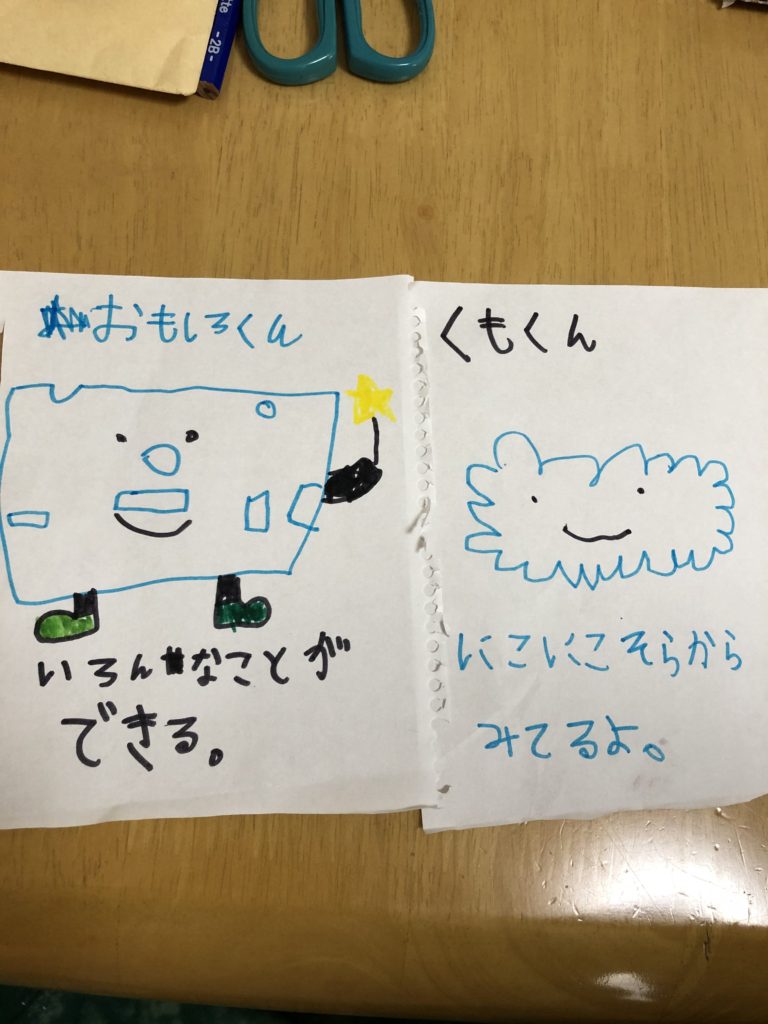 -2B-
おもしろくん
いろんなことが
できる。
くもくん
にこにこそらから
みてるよ。